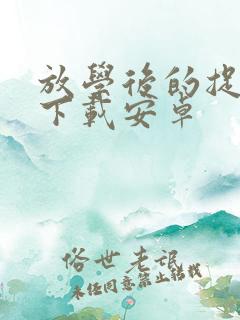 放學後的捉
下載安卓
俗世老裉
未經同意禁止轉載